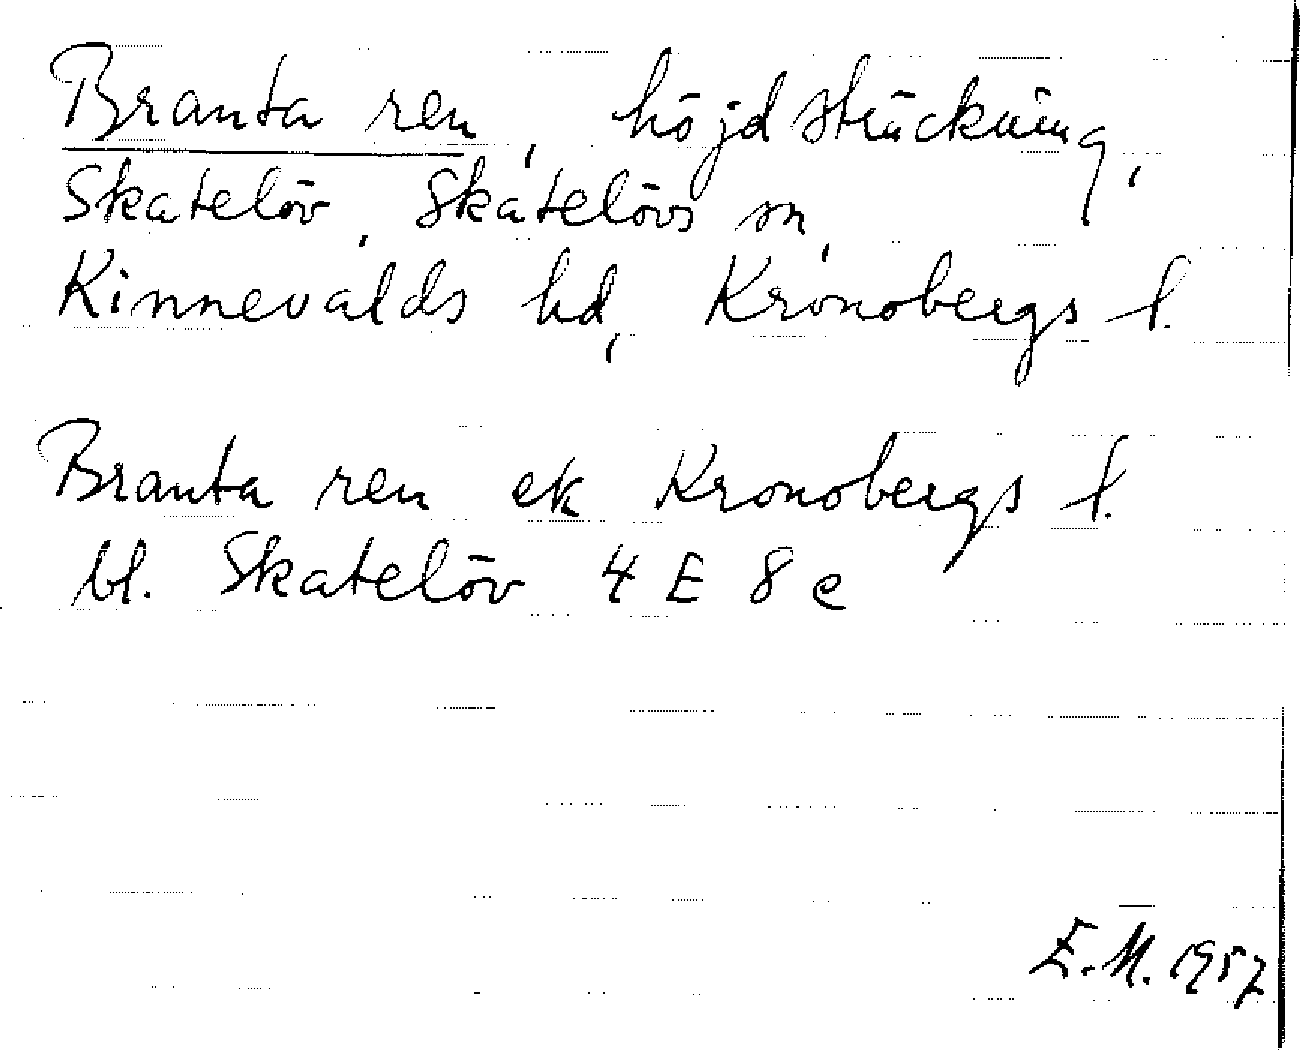 Branta ren, höjdsträckning,
Skatelöv, Skatelövs sn,
Kinnevalds hd, Kronobergs l.
Branta ren ek Kronobergs l.
bl. Skatelöv 4 E 8 e
E.M. 1957